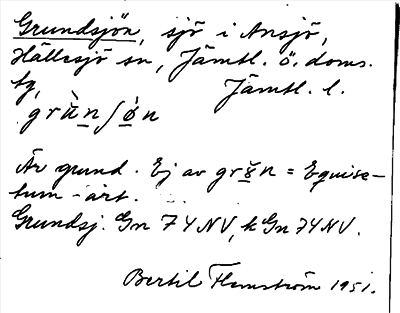 Grundsjön, sjö i Ansjö,
Hällesjö sn, Jämtl. ö. doms.
tg, Jämtl. l.
Är grund. Ej av = Equise-
tum-art.
Grundsj. Gn 74NV, k Gn 74NV.
Bertil Flemström 1951.